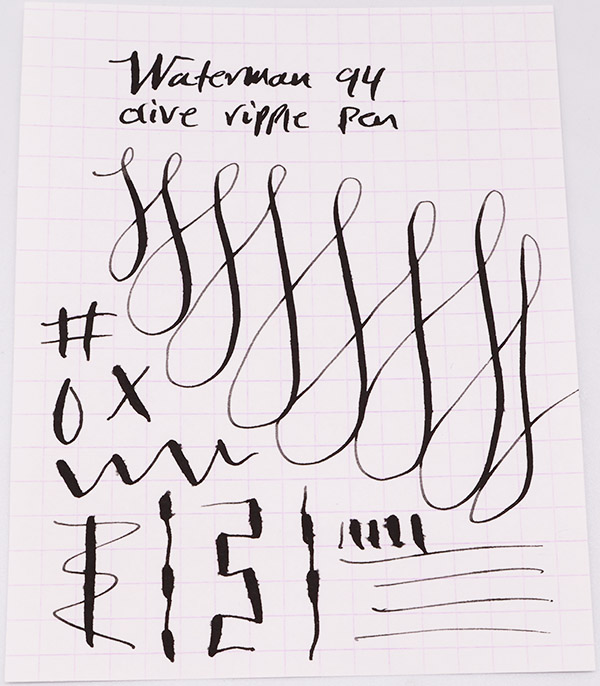 Waterman 94
olive ripple pen
# 
O X